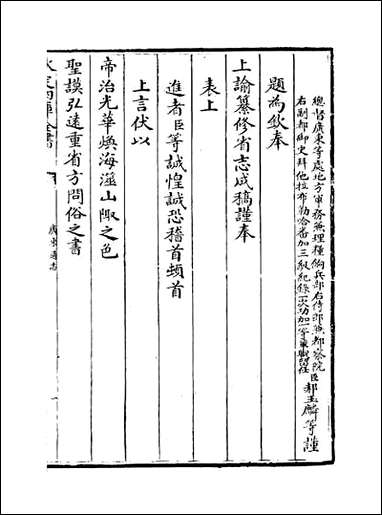 總督廣東等處地方軍務兼理糧餉兵部右侍郎兼都察院
右副都御史拜他拉布勒哈番加三級紀錄一次功加一等軍職留任
臣郝玉麟等謹
題為欽奉
上諭纂修省志成稿謹奉
表上
進者臣等誠惶誠恐稽首頓首
上言伏以
帝治光華煥海澨山陬之色
聖謨弘遠重省方問俗之書
欽定四庫全書
廣東通志